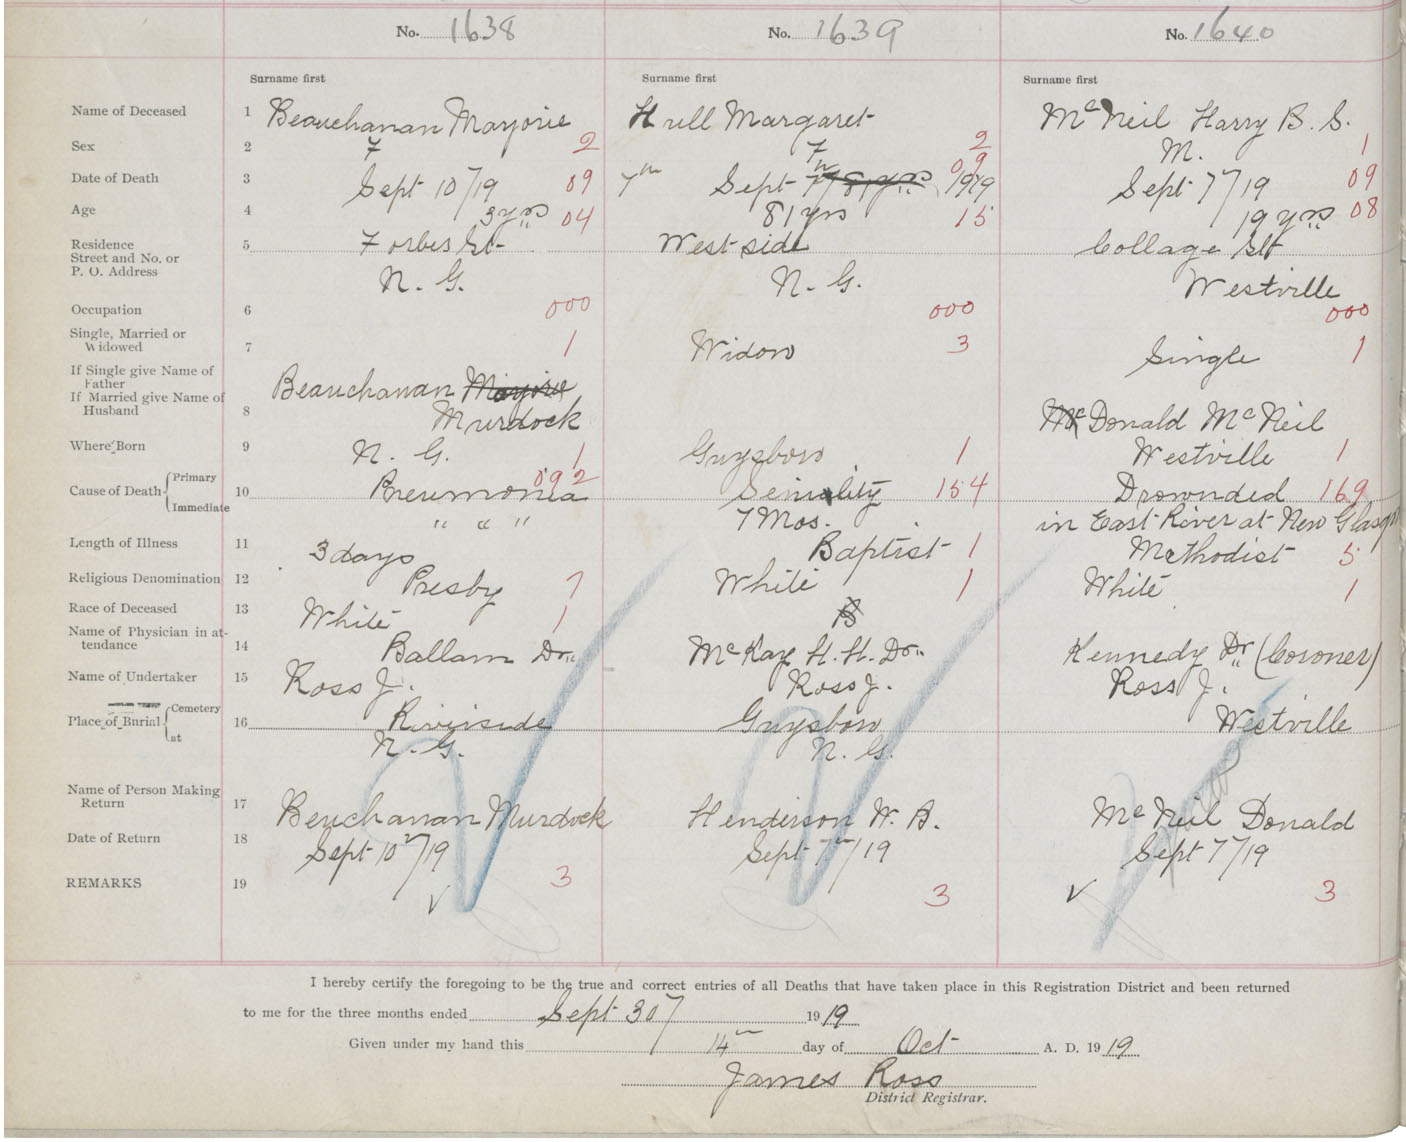 No. 1638 No. 1639 No. 1640
Surname first Surname first Surname first
Name of Deceased 1 Beauchanan Marjorie Hull Margaret McNeil Harry B. S.
Sex 2 F 2 F 2 M. 1
Date of Death 3 Sept 10/19 09 7th Sept 7th/ 81 yrs 1919 09 Sept 7/19 09
Age 4 3 yrs 04 81 yrs 15 19 yrs 08
Residence 5 Forbes St West side Collage St
Street and No. or
P. O. Address N. G. N. G. Westville
Occupation 6 000 000 000
Single, Married or
Widowed 7 1 Widow 3 Single 1
If Single give Name of
Father Beauchanan Marjorie
If Married give Name of
Husband 8 Murdock Mc Donald McNeil
Where Born 9 N. G. 1 Guysboro 1 Westville 1
Cause of Death { Primary 10 Pneumonia 092 Seniality 154 Drownded 169
Immediate " " " 7 Mos. in East River at New Glasgow
Length of Illness 11 3 days Baptist 1 Methodist 5
Religious Denomination 12 Presby 7 White 1 White 1
Race of Deceased 13 White 1 B
Name of Physician in at-
tendance 14 Ballam Dr. McKay H. H. Dr. Kennedy Dr (Coroner)
Name of Undertaker 15 Ross J. Ross J. Ross J.
Place of Burial { Cemetery 16 Riverside Guysboro Westville
at N. G. N. G.
Name of Person Making
Return 17 Beuchanan Murdock Henderson W. B. McNeil Donald
Date of Return 18 Sept 10th/19 Sept 7th/19 Sept 7/19
REMARKS 19 3 3 3
I hereby certify the foregoing to be the true and correct entries of all Deaths that have taken place in this Registration District and been returned
to me for the three months ended Sept 30 1919
Given under my hand this 14th day of Oct A. D. 1919
James Ross
District Registrar.